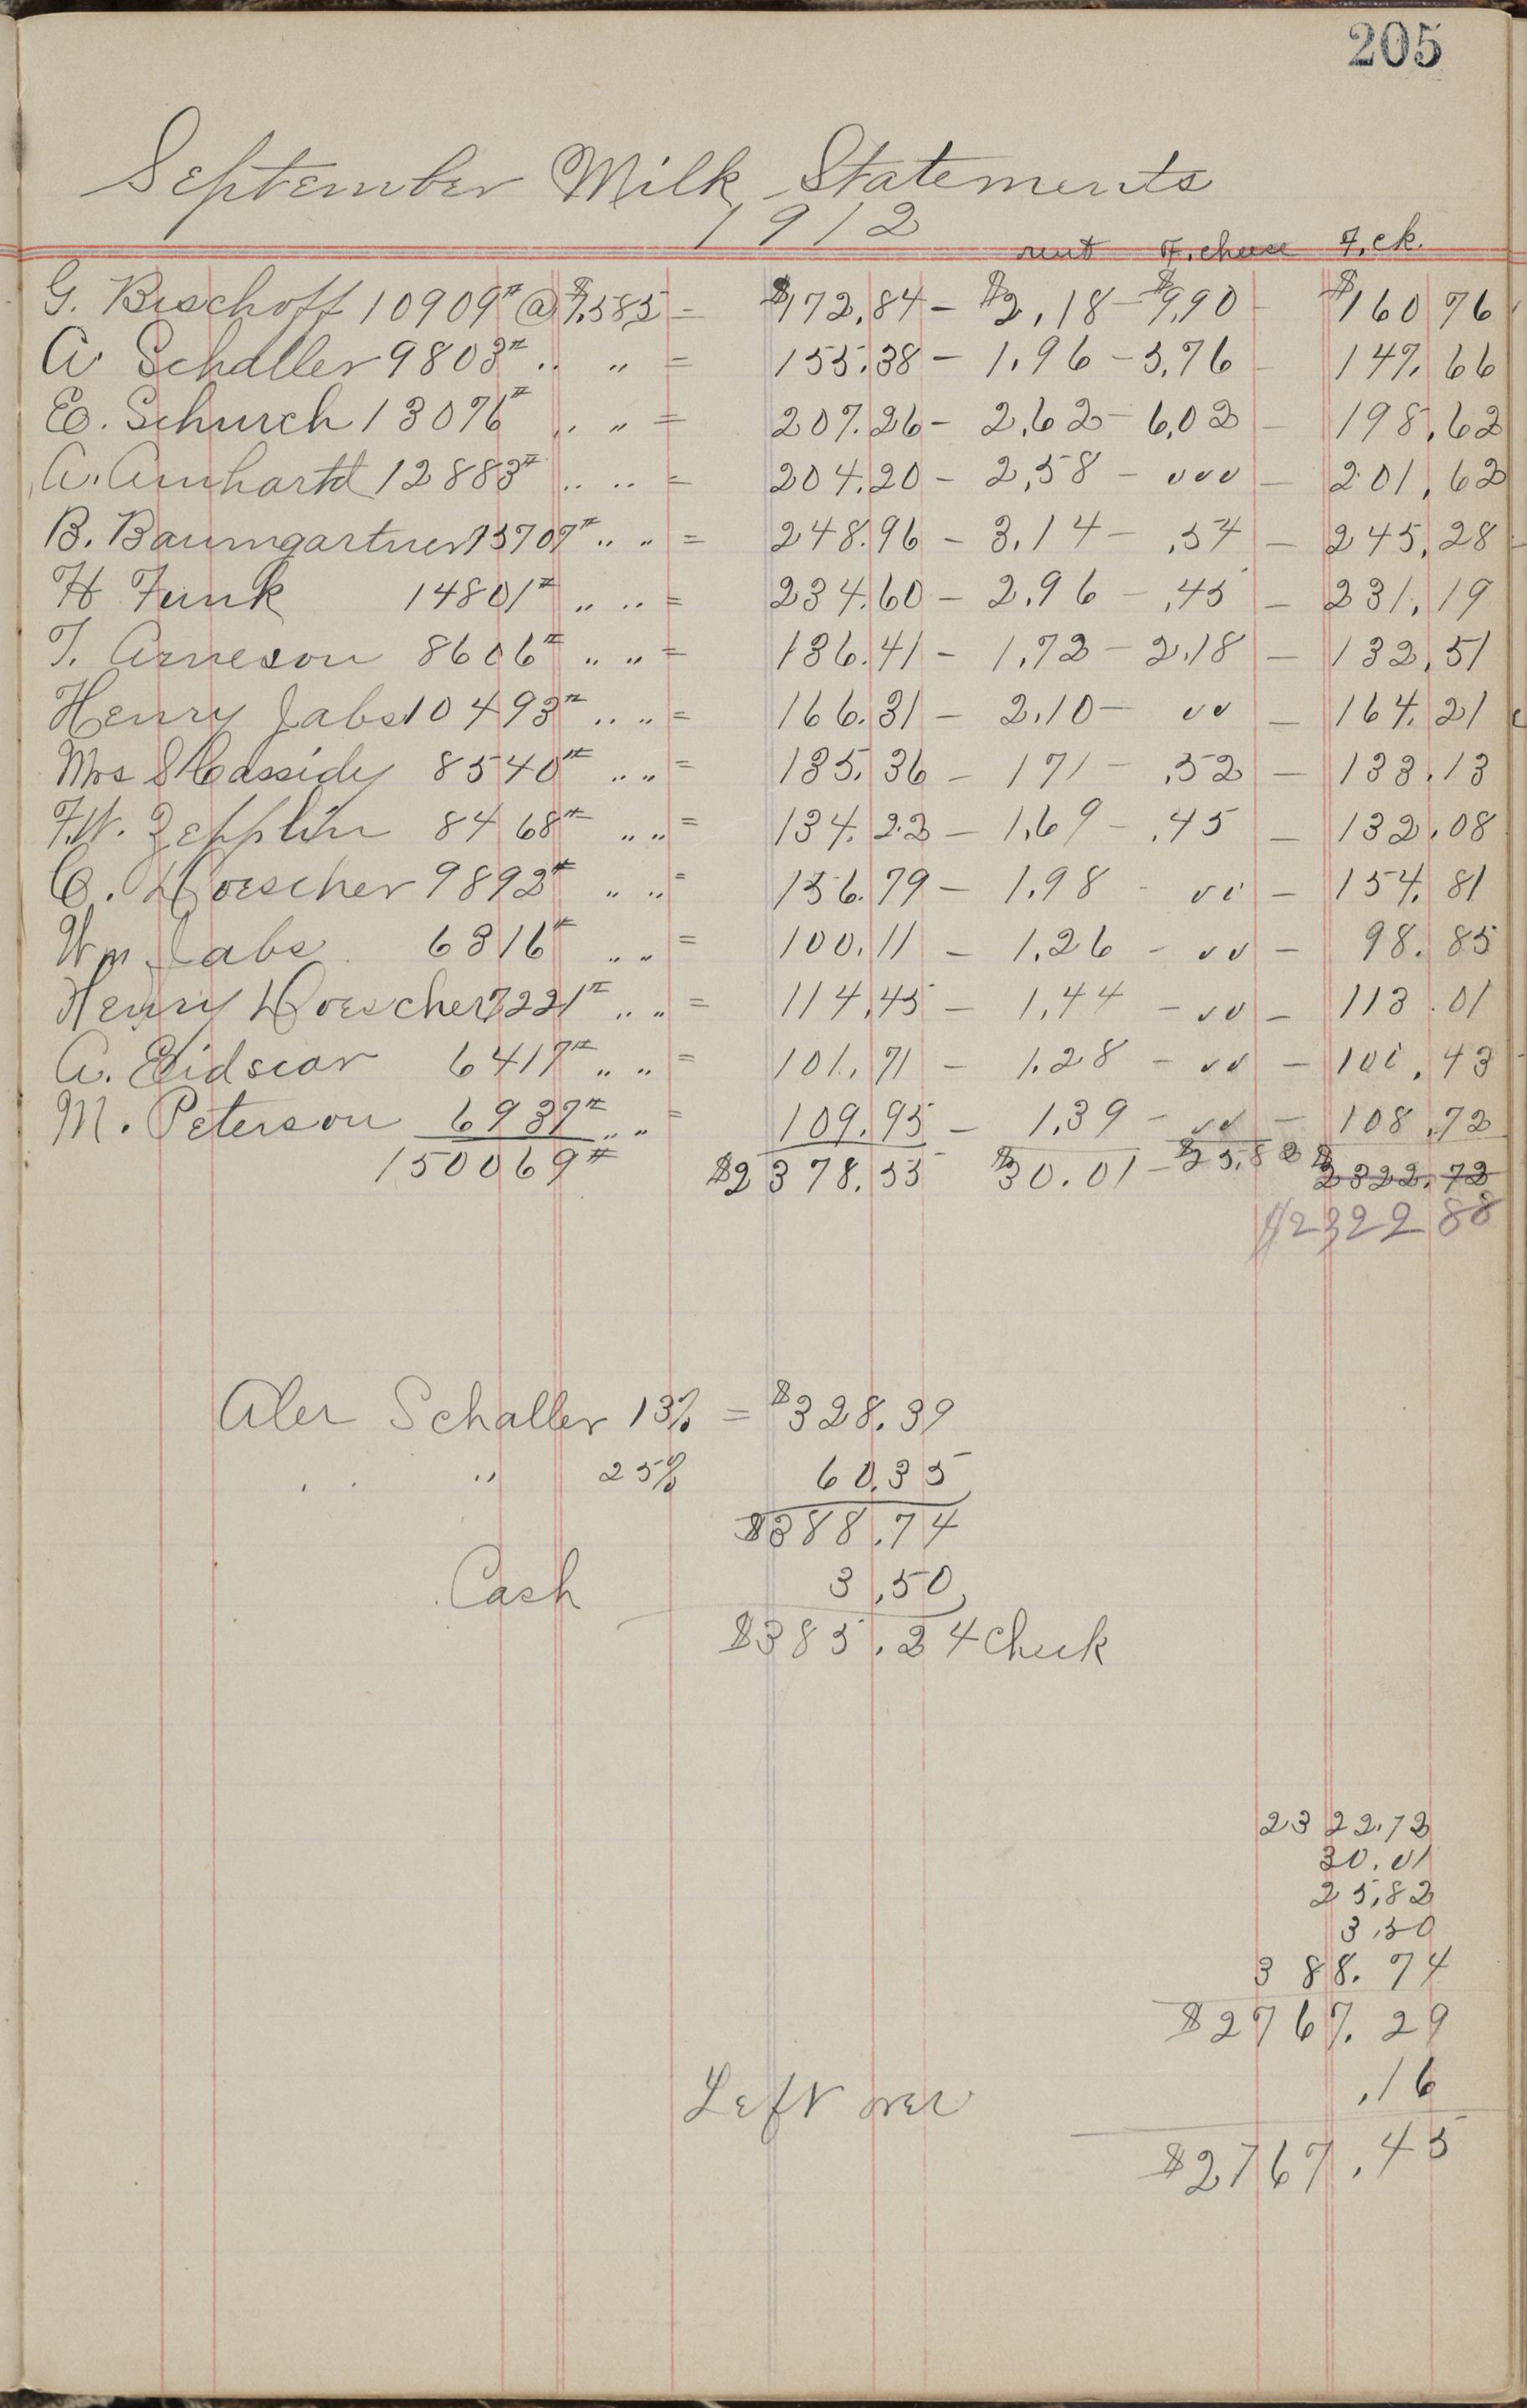 205
September Milk Statements
1912
rent F. cheese F. ck.
G. Bischoff 10909# @ $1,585 = $172,84 - $2,18 - $9,90 - $160 76
A Schaller 9803# .. ,, = 155.38 - 1,96 - 5,76 - 147.66
E. Schurch 13076# ,, ,, = 207.26 - 2,62 - 6,02 - 198,62
A. Amhartd 12883# .. .. = 204.20 - 2,58 - ooo - 201,62
B. Baumgartner 15707# ,, ,, = 248.96 - 3,14 - ,54 - 245,28
H Funk 14801# ,, .. = 234.60 - 2,96 - ,45 - 231,19
T. Arneson 8606# ,, ,, = 136.41 - 1,72 - 2,18 - 132,51
Henry Jabs 10493# .. ,, = 166.31 - 2,10 - oo - 164.21
Mrs S Cassidy 8540# ,, ,, = 135.36 - 171 - ,52 - 133.13
F.W. Zepplin 8468# ,, ,, = 134.22 - 1,69 - ,45 - 132.08
C. Hoescher 9892# ,, ,, = 156.79 - 1,98 - oo - 154.81
Wm Jabs 6316# ,, ,, = 100.11 - 1,26 - oo - 98.85
Henry Hoescher 7221# ,, ,, = 114,45 - 1,44 - oo - 113.01
A. Eidscor 6417# ,, ,, = 101.71 - 1.28 - oo - 100.43
M. Peterson 6937# ,, ,, = 109.95 - 1,39 - oo - 108.72
150069# $2378.55 - $30.01 - $25,82 $2322.72
$2322 88
Aler Schaller 13% = $328.39
,, 25% 60.35
$388.74
Cash 3,50
$385.24 Check
2322.72
30.01
25,82
3,50
388.74
$2767.29
Left over ,16
$2767.45